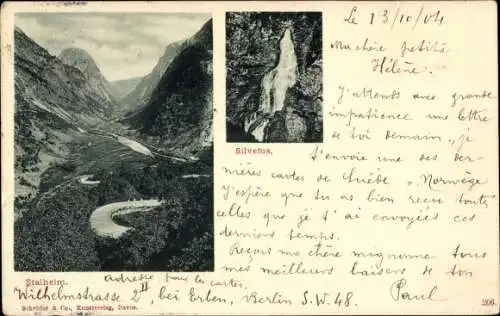 Le 13/10/04
Ma chère petite
Hélène.
J'attends avec grande
impatience une lettre
de toi demain, je
t'envoie une des der-
nières cartes de Suède Norwège
J'espère que tu as bien recu toutes
celles que je t'ai envoyées ces
derniers temps.
Reçois ma chère mignonne tous
mes meilleurs baisers de ton
Paul
Silvefos.
Stalheim.
Adresse pour les cartes.
Wilhelmstrasse 2 II, bei Erben, Berlin S.W. 48.
Schröder & Co., Kunstverlag, Davos.
206.